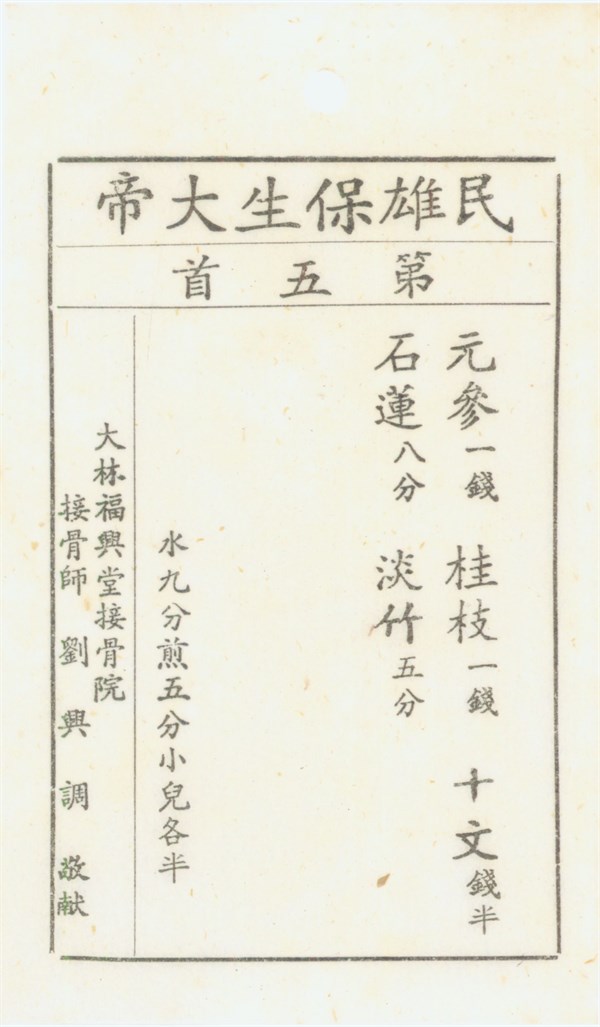 民雄保生大帝
第五首
元參一錢 桂枝一錢 十文錢半
石蓮八分 淡竹五分
水九分煎五分小兒各半
大林福興堂接骨院
接骨師 劉興調 敬献